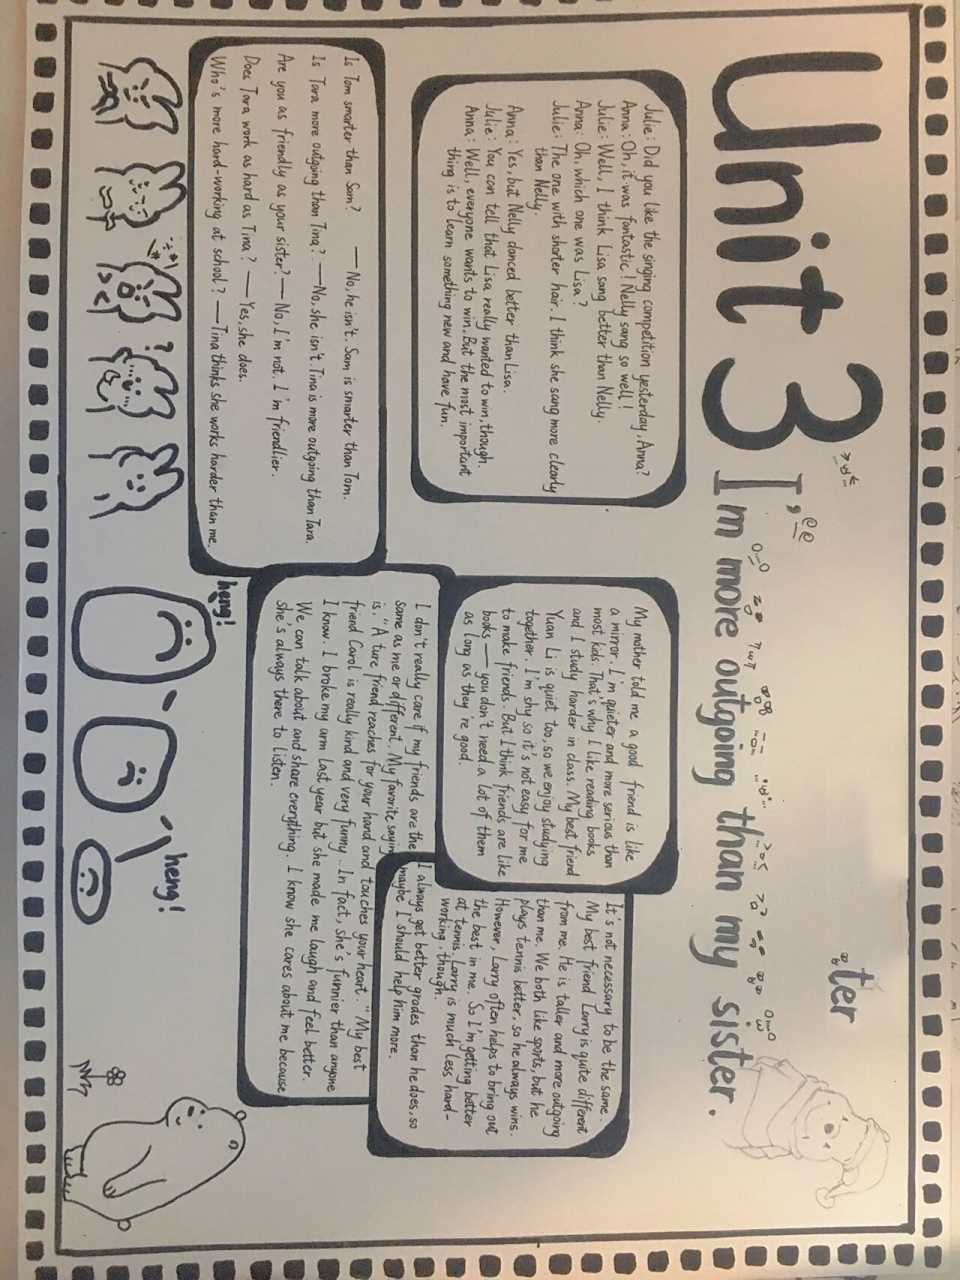 Unit 3
I'm more outgoing than my sister.
ter
Julie: Did you like the singing competition yesterday, Anna?
Anna: Oh, it was fantastic! Nelly sang so well!
Julie: Well, I think Lisa sang better than Nelly.
Anna: Oh, which one was Lisa?
Julie: The one with shorter hair. I think she sang more clearly
than Nelly.
Anna: Yes, but Nelly danced better than Lisa.
Julie: You can tell that Lisa really wanted to win, though.
Anna: Well, everyone wants to win. But the most important
thing is to learn something new and have fun.
Is Tom smarter than Sam? — No, he isn't. Sam is smarter than Tom.
Is Tara more outgoing than Tina? — No, she isn't. Tina is more outgoing than Tara.
Are you as friendly as your sister? — No, I'm not. I'm friendlier.
Does Tara work as hard as Tina? — Yes, she does.
Who's more hard-working at school? — Tina thinks she works harder than me.
My mother told me a good friend is like
a mirror. I'm quieter and more serious than
most kids. That's why I like reading books
and I study harder in class. My best friend
Yuan Li is quiet too, so we enjoy studying
together. I'm shy so it's not easy for me
to make friends. But I think friends are like
books — you don't need a lot of them
as long as they're good.
It's not necessary to be the same.
My best friend Larry is quite different
from me. He is taller and more outgoing
than me. We both like sports, but he
plays tennis better, so he always wins.
However, Larry often helps to bring out
the best in me. So I'm getting better
at tennis. Larry is much less hard-
working, though.
I always get better grades than he does, so
maybe I should help him more.
I don't really care if my friends are the
same as me or different. My favorite saying
is. "A ture friend reaches for your hand and touches your heart." My best
friend Carol is really kind and very funny .. In fact, she's funnier than anyone
I know. I broke my arm last year but she made me laugh and feel better.
We can talk about and share everything. I know she cares about me because
she's always there to listen.
heng!
heng!